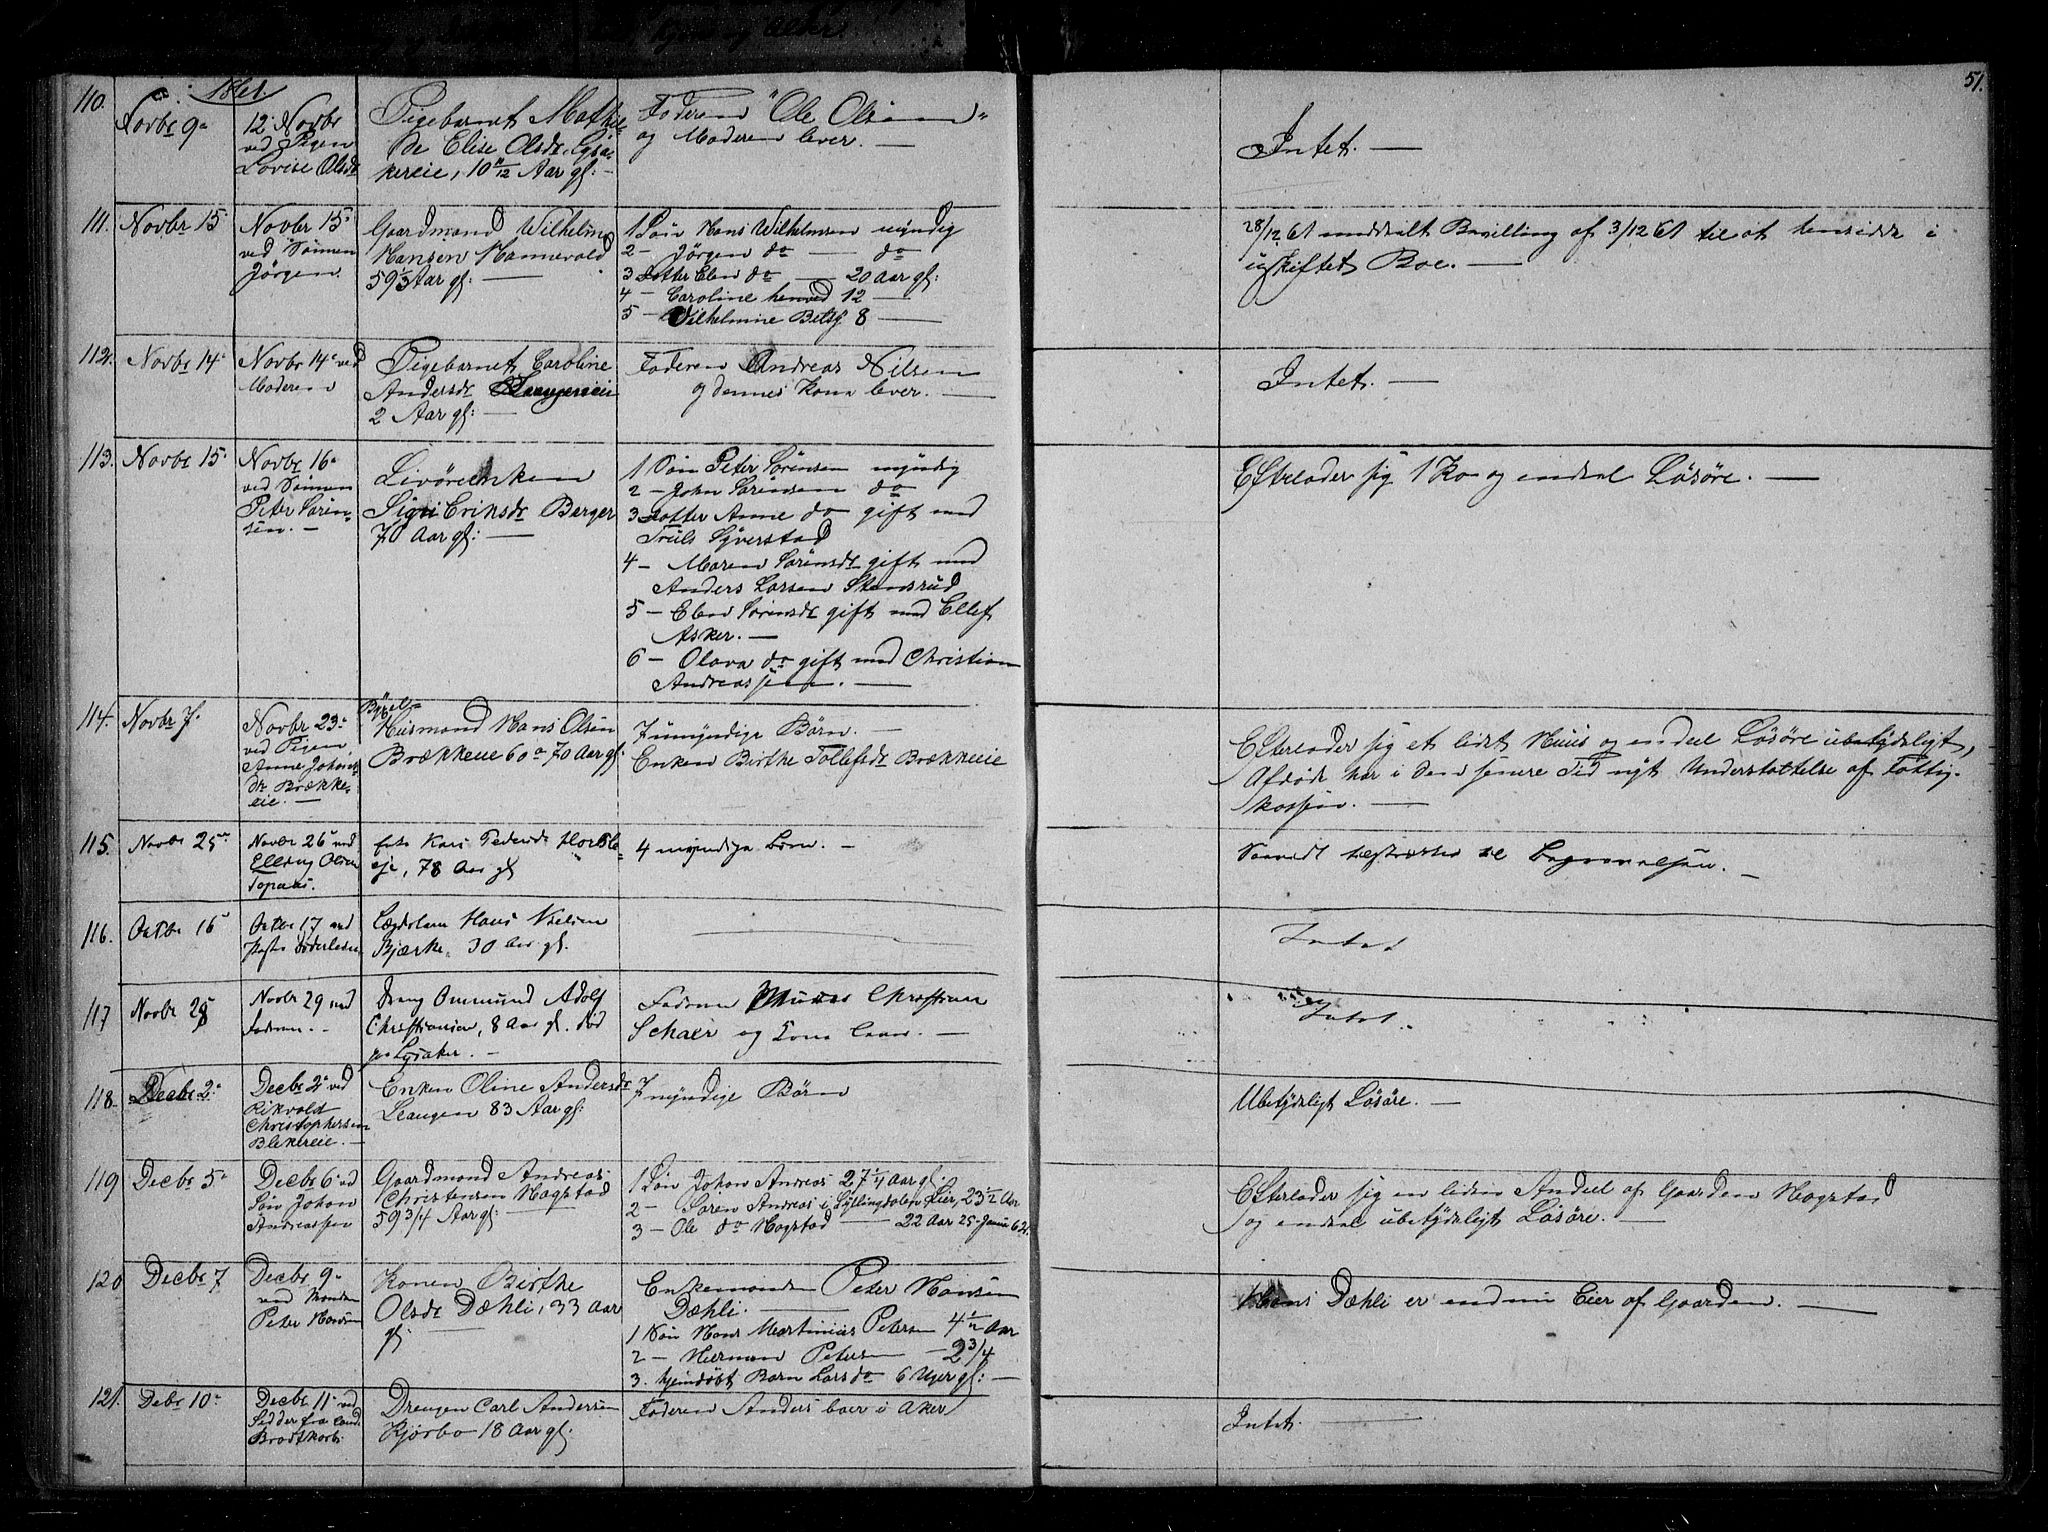 51.
1861.
110.
Novbr 9-
12- Novbr
ved Pigen
Lovise Olsdr
Pigebarnet Mathil-
de Elise Olsdr. Lysa-
kereie, 10 11/12 Aar gl: —
Faderen "Ole Olsen"
og Moderen lever. —
Intet. —
111.
Novbr 15-
Novbr 15-
ved Sønnen
Jørgen.
Gaardmand Wilhelm
Hansen Hannevold
59 1/3 Aar gl: —
1 Søn Hans Wilhelmsen myndig
2 — Jörgen do — do
3 Datter Elen do — 20 Aar gl:
4 — Caroline henved 12 —
5 — Wilhelmine Betsy 8 —
28/12 61 meddeelt Bevilling af 3/12 61 til at hensidde i
uskiftet Boe. —
112.
Novbr 14-
Novbr 14- ved
Moderen
Pigebarnet Caroline
Andersdr
2 Aar gl: —
Faderen Andreas Nilsen
og dennes Kone lever. —
Intet. —
113.
Novbr 15-
Novbr 16-
ved Sønnen
Peter Sören-
sen. —
Livöreenken
Sigri Eriksdr Berger
70 Aar gl: —
1 Søn Peter Sörensen myndig
2 — John Sörensen do
3 Datter Anne do gift med
Truls Syverstad
4 — Maren Sörensdr gift med
Anders Larsen Stensrud
5 — Elen Sörensdr gift med Ellef
Asker. —
6 — Olava do gift med Christian
Andreassen. —
Efterlader sig 1 Ko og endeel Lösöre. —
114.
Novbr 7-
Novbr 23-
ved Pigen
Anne Johans-
dr. Brække-
eie. —
Husmand Hans Olsen
Brækkeeie 60 a 70 Aar gl:
7 umyndige Börn. —
Enken Birthe Tollefsdr Brækkeeie
Efterlader sig et lidet Huus og endeel Lösöre ubetydeligt,
Afdöde har i den senere Tid nydt Understøttelse af Fattig-
kassen. —
115.
Novbr 25-
Novbr 26- ved
Elling Olsen
Topaas.
Enke Kari Pedersdr
eje, 78 Aar gl
4 myndige Börn. —
til Begravelsen. —
116.
Octbr 16-
Octbr 17 ved
Lægdslem Hans Nielsen
Bjerke. 30 Aar gl.
Intet
117
Novbr 28
Novbr 29 ved
Faderen. —
Dreng Ommund Adolf
Christiansen, 8 Aar gl. död
paa Lysaker. —
Faderen Christian
Schaer og Kone lever. —
Intet.
118.
Decbr 2-
Decbr 2- ved
Rikvold
Christophersen
Blekereie. —
Enken Oline Andersdr
Leangen 83 Aar gl:
7 myndige Börn
Ubetydeligt Lösöre. —
119
Decbr 5-
Decbr 6- ved
Søn Johan
Andreassen
Gaardmand Andreas
Christensen Hogstad
59 3/4 Aar gl:
1 Søn Johan Andreas 27 1/4 Aar gl.
2 — Sören Andreas i Syllingdalen Lier, 23 1/2 Aar
3 — Ole do Hogstad — 22 Aar 25- Januar 62.
Efterlader sig en liden Andeel af Gaarden Hogstad
og endeel ubetydeligt Lösöre. —
120
Decbr 7
Decbr 9-
ved Manden
Peter Hansen
Konen Birthe
Olsdr Dæhli, 33 Aar
gl.
Enkemanden Peter Hansen
Dæhli. —
1 Søn Hans Martinius Petersen 4 1/2 Aar
2 — Herman Petersen — 2 3/4
3. hjemdöbt Barn Lars do 6 Uger gl: —
Hans Dæhli er endnu Eier af Gaarden. —
121.
Decbr 10-
Decbr 11- ved
Seddel fra Cand.
Brodtkorb.
Drengen Carl Andersen
Kjörbo 18 Aar gl.
Faderen Anders boer i Aker
Intet. —